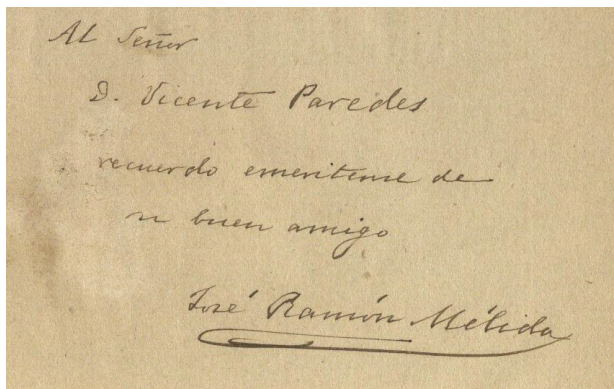 Al Señor
D. Vicente Paredes
recuerdo emeritense de
su buen amigo
José Ramón Mélida